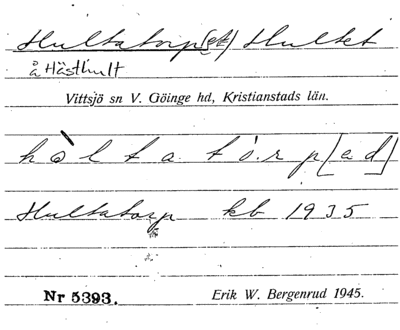 Hultatorp(et) Hultet
å Hästhult
Vittsjö sn V. Göinge hd, Kristianstads län.
hòltatò.rp[ad]
Hultatorp kb 1935
Nr 5393. Erik W. Bergenrud 1945.